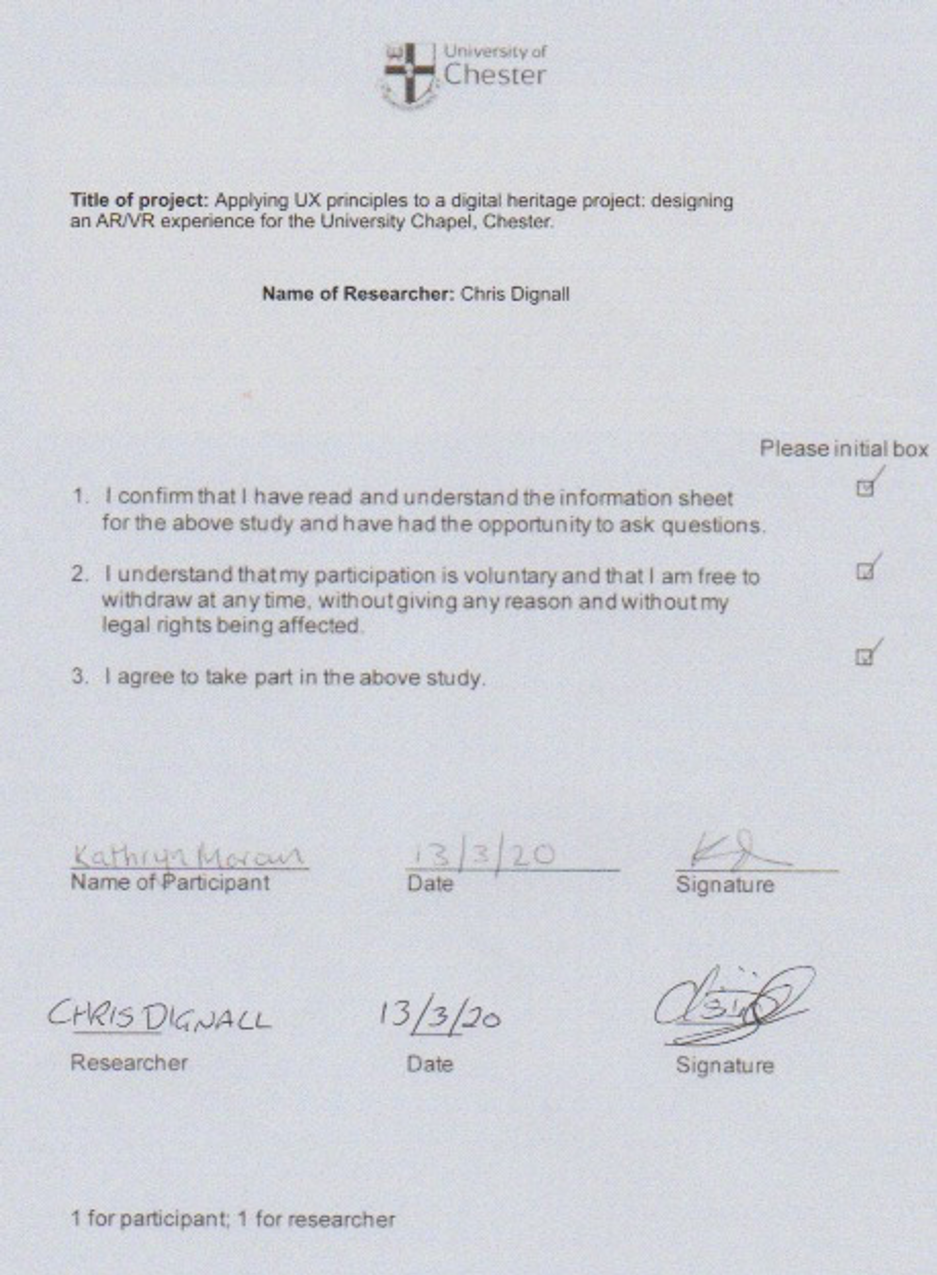 University of
Chester
Title of project: Applying UX principles to a digital heritage project: designing
an AR/VR experience for the University Chapel, Chester.
Name of Researcher: Chris Dignall
Please initial box
1. I confirm that I have read and understand the information sheet
for the above study and have had the opportunity to ask questions.
2. I understand that my participation is voluntary and that I am free to
withdraw at any time, without giving any reason and without my
legal rights being affected.
3. I agree to take part in the above study.
Kathryn Moran 13/3/20
Name of Participant Date Signature
CHRIS DIGNALL 13/3/20
Researcher Date Signature
1 for participant; 1 for researcher